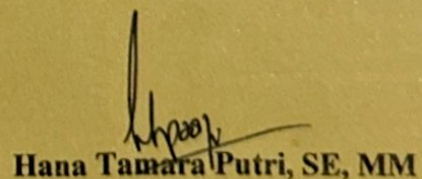 Hana Tamara Putri, SE, MM